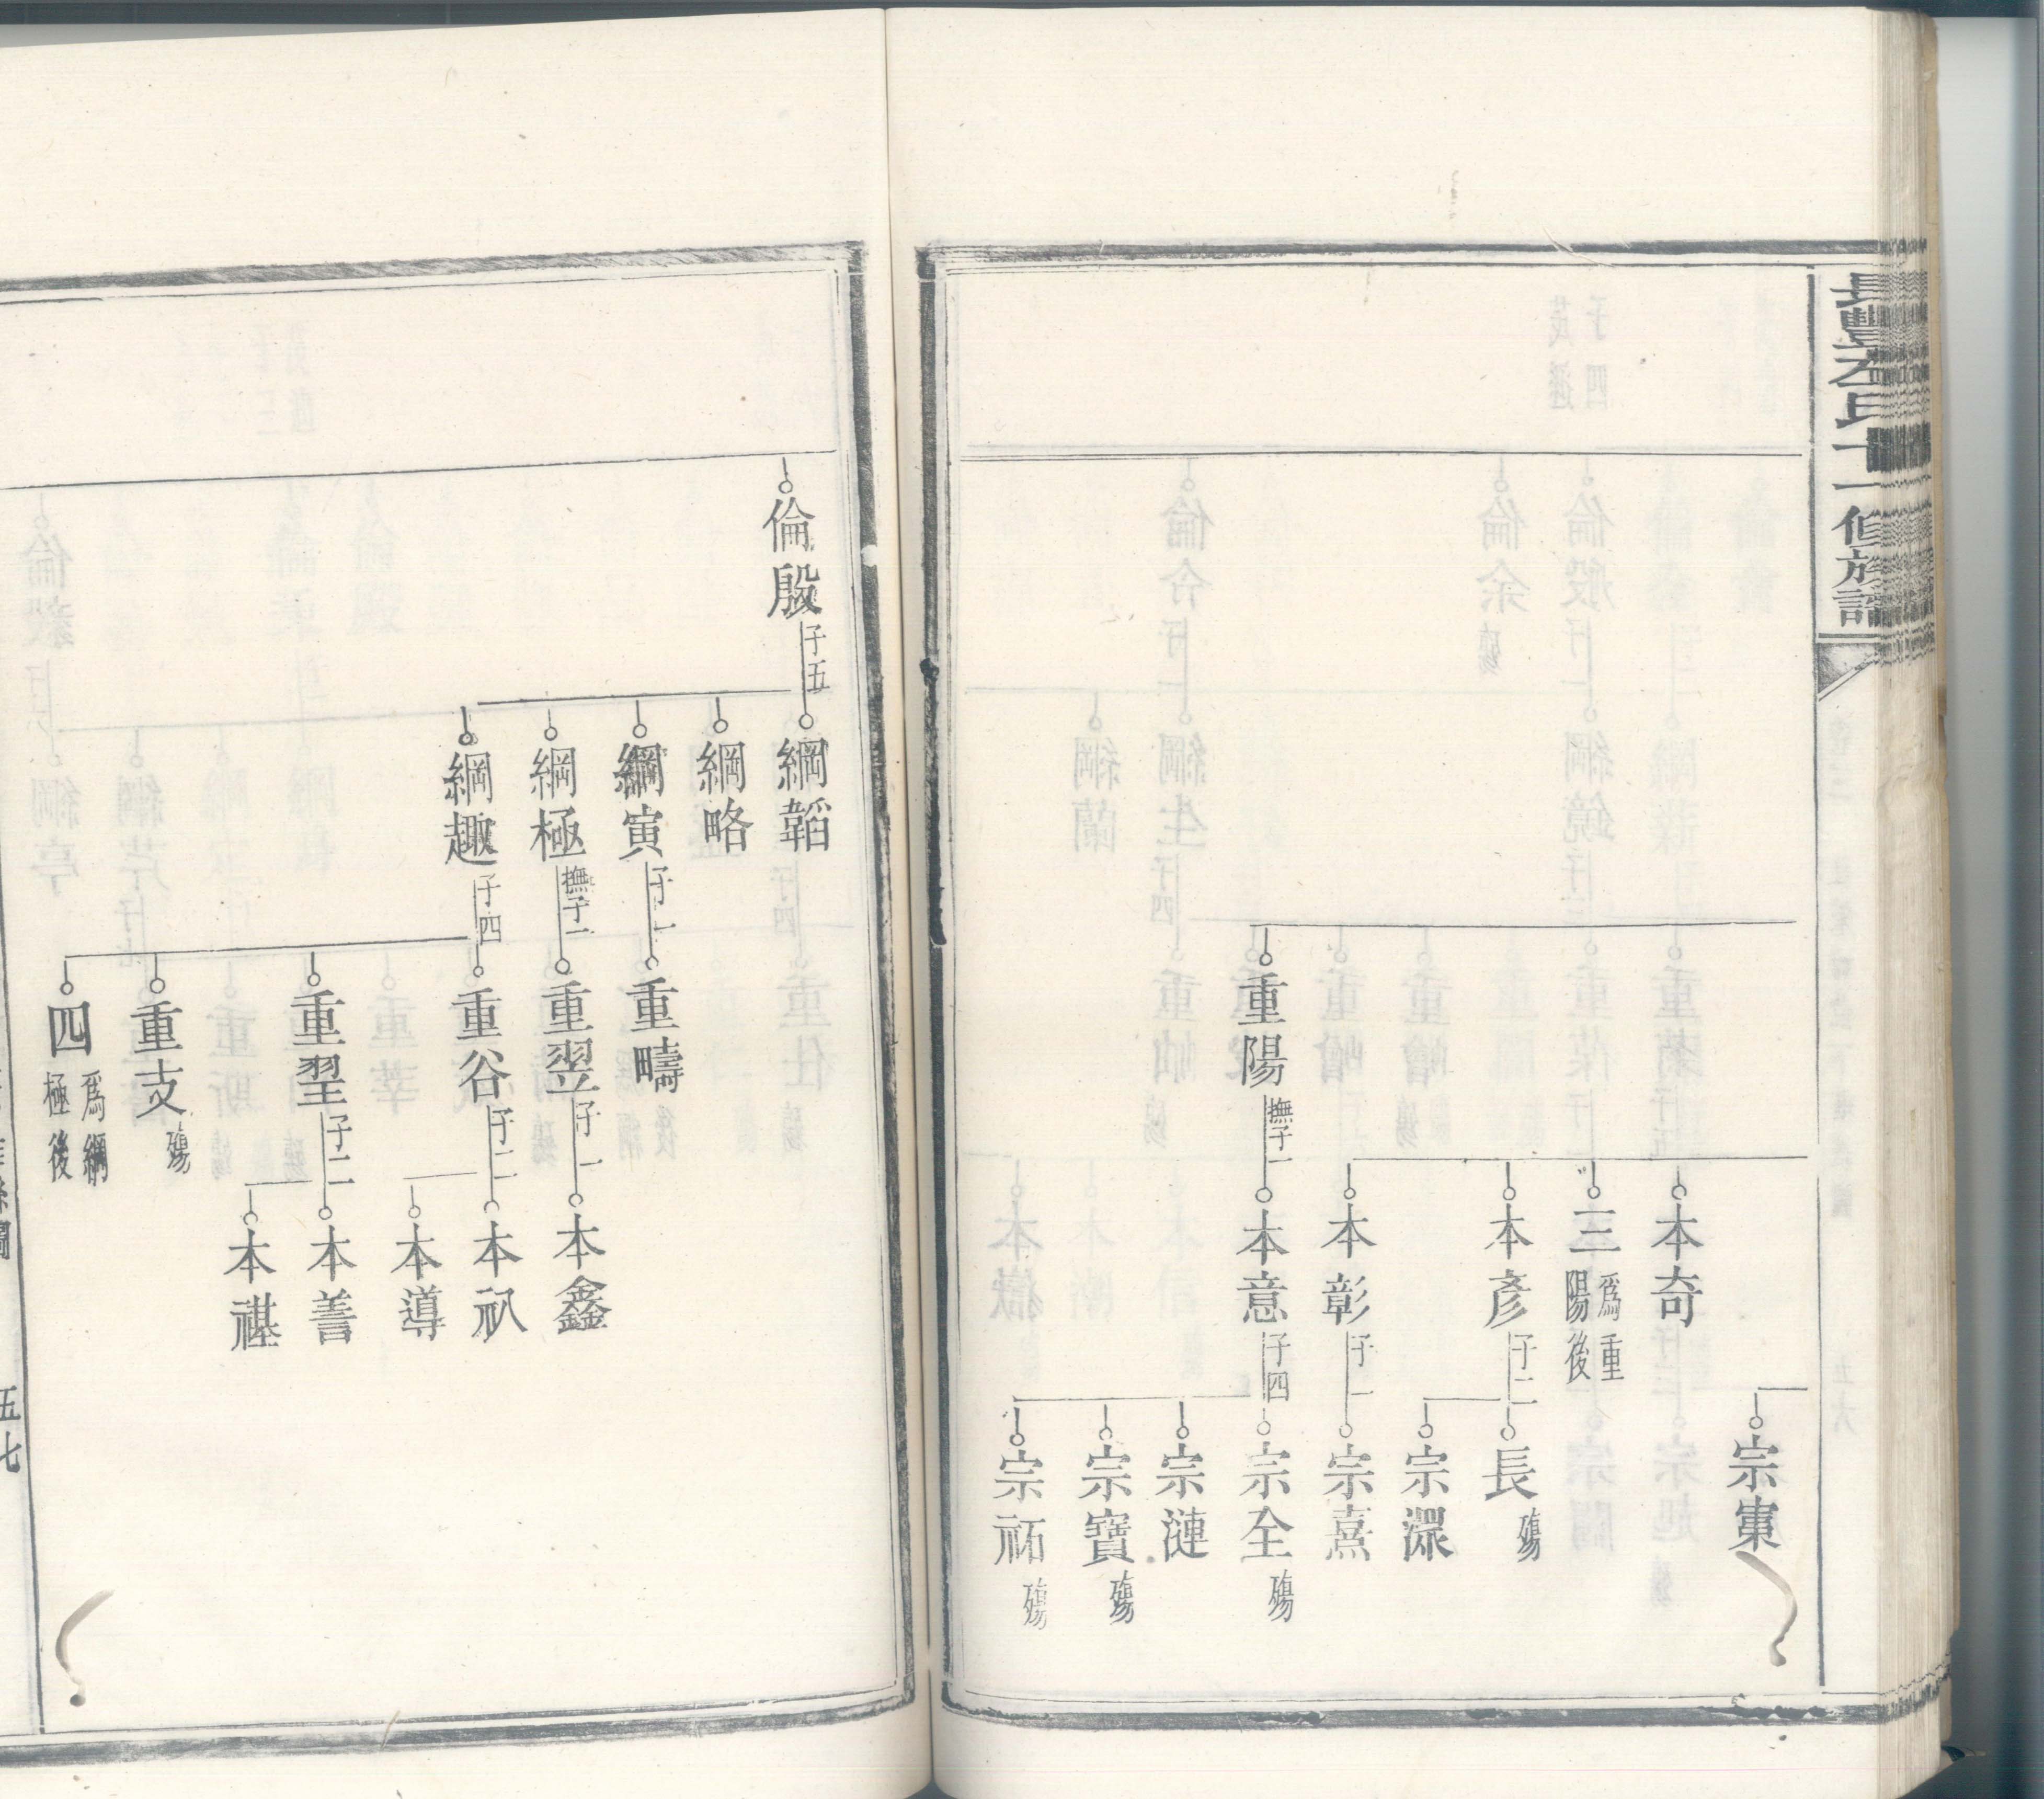 長豐左氏十一修族譜
宗東
本奇
三
爲重
陽後
本彥
子二
長
殤
宗潔
本彰
子一
宗熹
重陽
撫子一
本意
子四
宗全
殤
宗漣
宗寶
殤
宗祏
殤
倫殷
子五
綱韜
綱略
綱寅
子一
重疇
綱極
撫子一
重翌
子一
本鑫
綱趣
子四
重谷
子二
本䄂
本導
重翌
子二
本善
本禥
重支
殤
四
爲綱
極後
五七